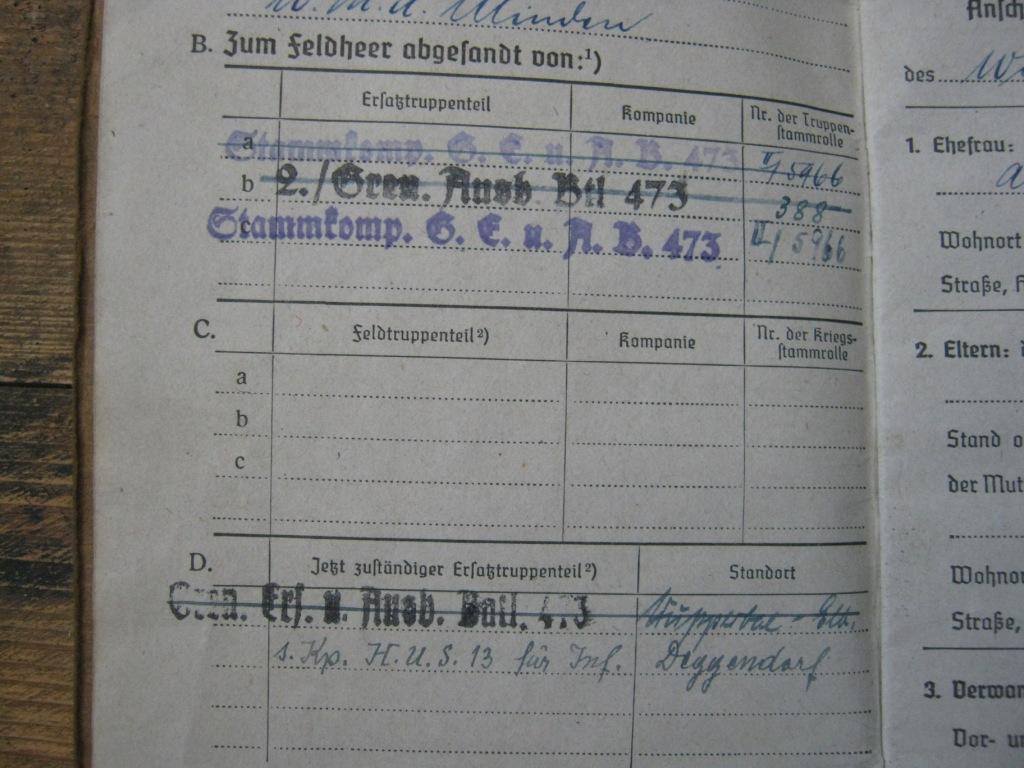 W.M.A. Minden
B. Zum Feldheer abgesandt von:¹)
Ersatztruppenteil Kompanie Nr. der Truppen-
stammrolle
a Stammkomp. G. E. u. A. B. 473 II/5966
b 2./Gren. Ausb Btl 473 388
c Stammkomp. G. E. u. A. B. 473 II/5966
C. Feldtruppenteil²) Kompanie Nr. der Kriegs-
stammrolle
a
b
c
D. Jetzt zuständiger Ersatztruppenteil²) Standort
Gren. Ers. u. Ausb. Batl. 473 Wuppertal - Elb.
s. Kp. H.U.S. 13 für Inf. Deggendorf
Ansch
des
1. Ehefrau:
Wohnort
Straße,
2. Eltern:
Stand
der Mut
Wohnor
Straße,
3. Verwan
Vor- un